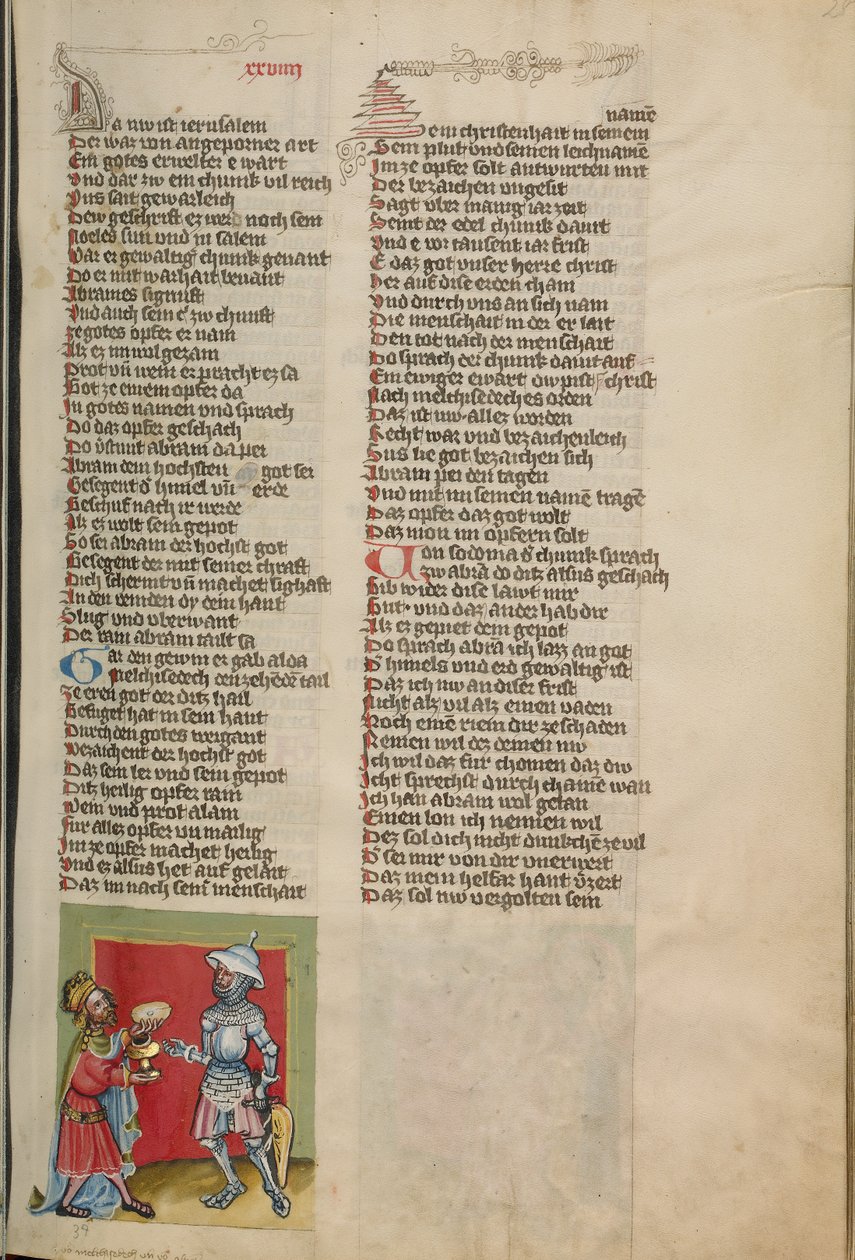 xxviiij
Da nw ist ierusalem
Der waz von angeporner art
Ein gotes erwelter ewart
Vnd dar zw ein chunik vil reich
Vns sait gewarleich
Dew geschrift ez wer noch sem
Noeles sun vnd in salem
War er gewaltig chunk genant
Do er mit warhait bevant
Abrames signuft
Vnd auch sein e zw chunft
ze gotes opfer er nam
Alz ez im wol gezam
Prot vn wein er pracht ez sa
Got ze einem opfer da
In gotes namen vnd sprach
Do daz opfer geschach
Do vstunt abram da pei
Abram dem hochsten got sei
Gesegent der himel vn erde
Geschuf nach ir werde
Alz ez wolt sein gepot
So sei abram der hochst got
Gesegent der mit seiner chraft
Dich schermt vn machet sighaft
An den veinden dy dein hant
Slug vnd vberwant
Der ram abram tailt sa
Gar den gewin er gab alda
Melchisedech den zehende tail
Ze eren got der ditz hail
Gefuget hat in sein hant
Durch den gotes weigant
Bezaichent der hochst got
Daz sein ler vnd sein gepot
Ditz heilig opfer ram
Wein vnd prot alam
Fur allez opfer vn mailig
Im ze opfer machet heilig
Vnd ez alsus het auf gelait
Daz im nach seinr menschait
namē
Dem christenhait in seinem
Sein plut vnd seinen leichnamē
Im ze opfer solt antwurten mit
Der bezaichen vngesit
Sagt vber manig iar zeit
Seint der edel chunik dauit
Vnd e wr tausent iar frist
E daz got vnser herre christ
Her auf dise erden cham
Vnd durch vns an sich nam
Die menschait in der er lait
Den tot nach der menschait
Do sprach der chunik dauit auf
Ein ewiger ewart dw pist christ
Nach melchisedeches orden
Daz ist nw allez worden
Recht war vnd bezaichenleich
Sus lie got bezaichen sich
Abram pei den tagen
Vnd mit im seinen namē tragē
Daz opfer daz got wolt
Daz mon im opfern solt
Von sodoma der chunk sprach
zw abrā do ditz alsus geschach
Gib wider dise lawt mir
Gut vnd daz ander hab dir
Alz ez gepiet dem gepot
Do sprach abrā ich lazz an got
Der himels vnd erd gewaltig ist
Daz ich nw an diser frist
Nicht alz vil alz einen vaden
Noch einē riem dir ze schaden
Nemen wil dez deinen nw
Ich wil daz fur chomen daz dw
Icht sprechst durch chainē wan
Ich han abram wol getan
Einen lon ich nemen wil
Dez sol dich nicht dunkchē ze vil
Der sei mir von dir vnerwert
Daz mein helfar hant verzert
Daz sol nw vergolten sein
34